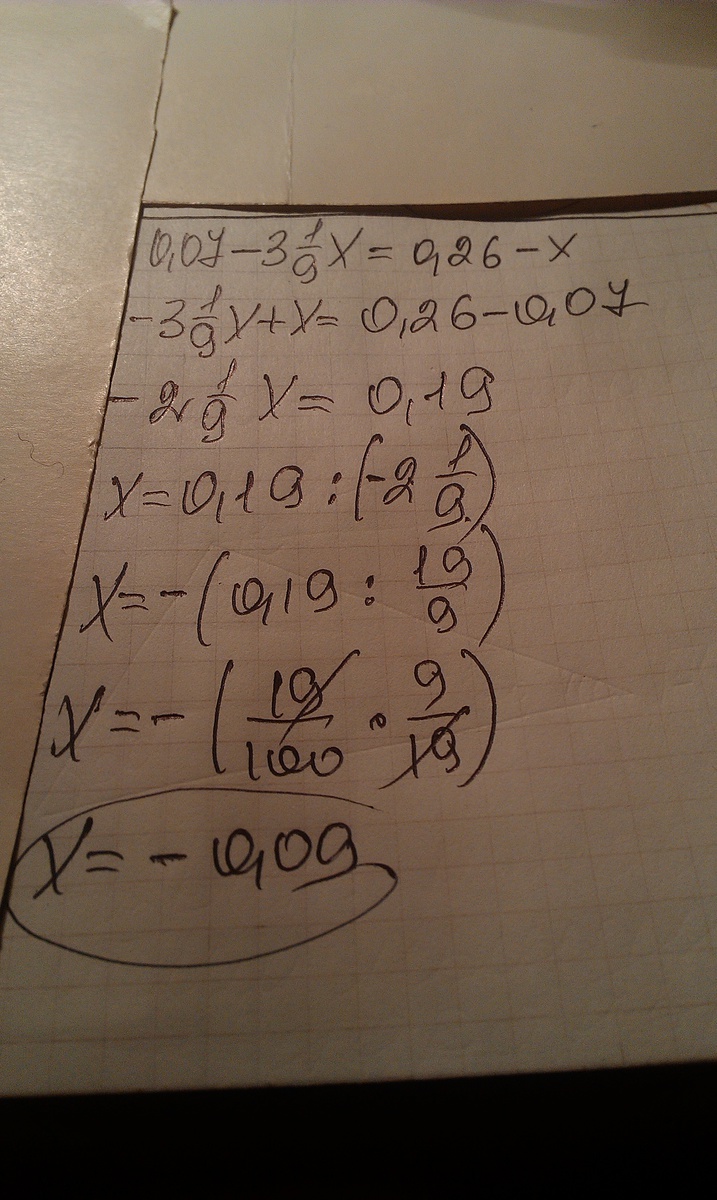 0,07 − 3 1/9 X = 0,26 − X
− 3 1/9 X + X = 0,26 − 0,07
− 2 1/9 X = 0,19
X = 0,19 : (−2 1/9)
X = − (0,19 : 19/9)
X = − (19/100 · 9/19)
X = − 0,09